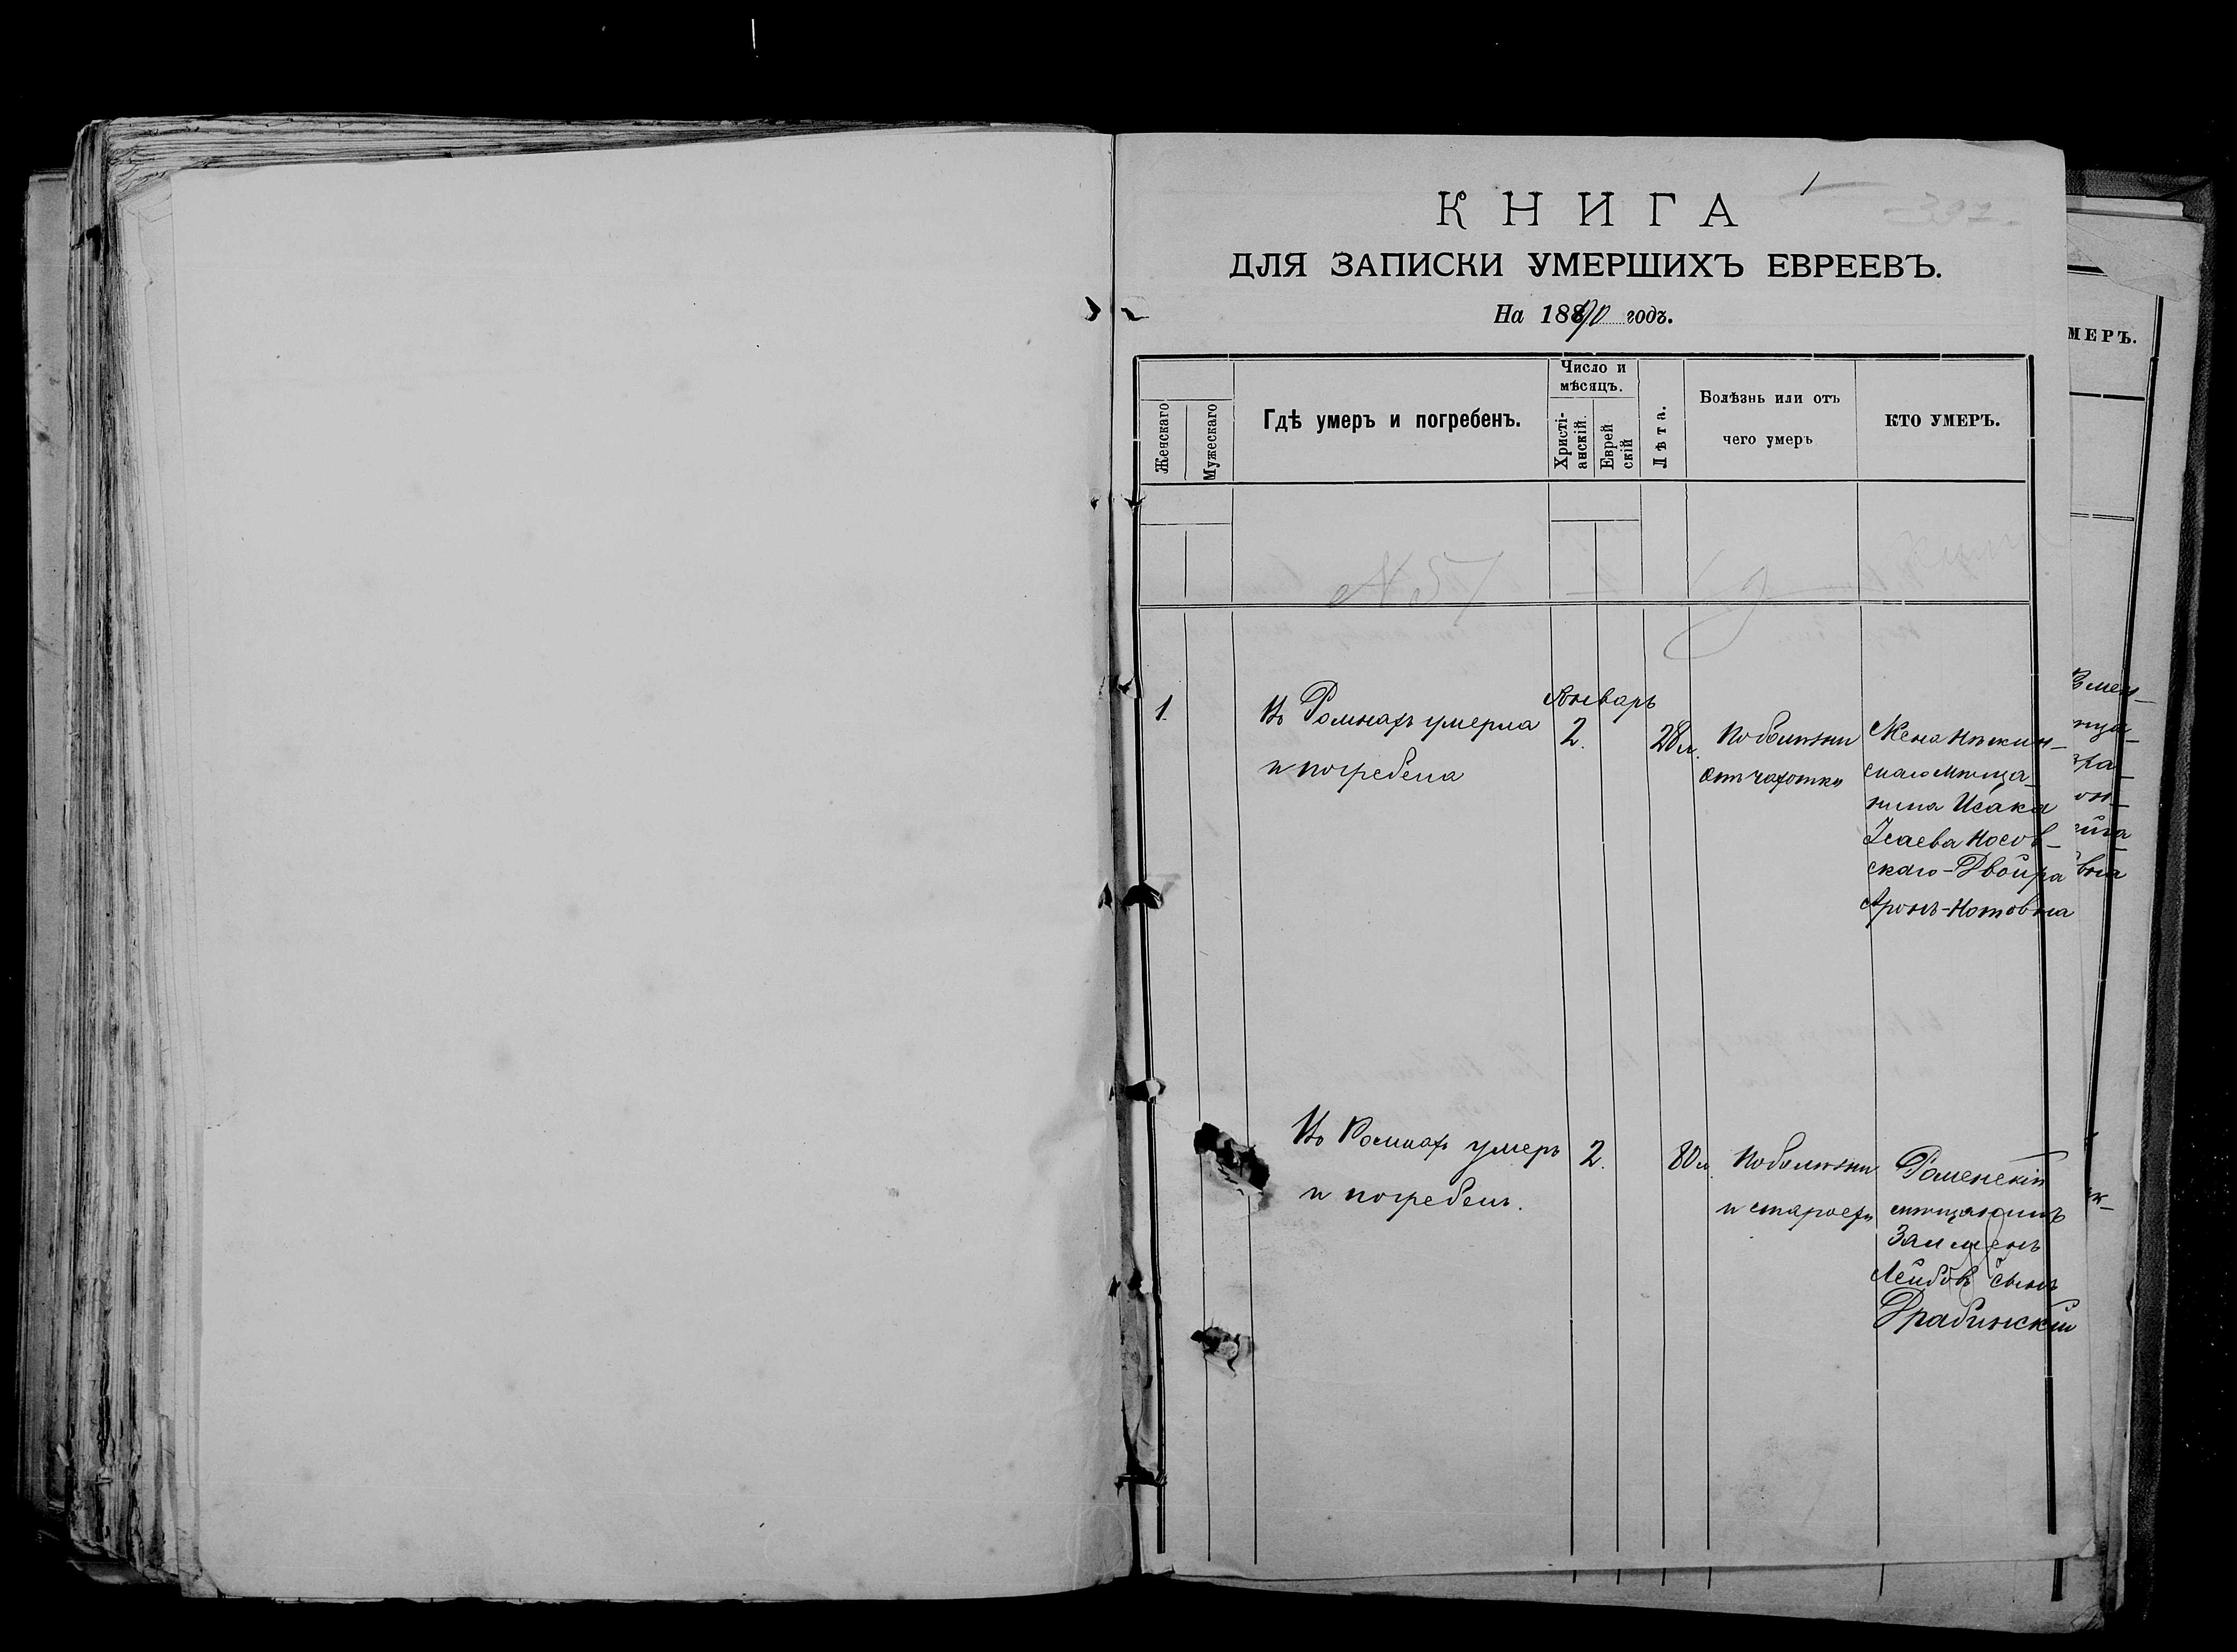 1
КНИГА
ДЛЯ ЗАПИСКИ УМЕРШИХЪ ЕВРЕЕВЪ.
На 1890 годъ.
Женскаго
Мужескаго
Гдѣ умеръ и погребенъ.
Число и мѣсяцъ.
Христіанскій.
Еврейскій
Лѣта.
Болѣзнь или отъ
чего умеръ
КТО УМЕРЪ.
МЕРЪ.
N 57
1.
Въ Ромнахъ умерла
и погребена
Январь
2.
28 л.
По болѣзни
отъ чахотки
Жена Нѣжин-
скаго мѣща-
нина Исака
Исаева Носов-
скаго - Двойра
Аронъ-Нотовна
Въ Ромнахъ умеръ
и погребенъ.
2.
80 л
По болѣзни
и старости
Роменскій
мѣщанинъ
Залменъ
Лейбовъ сынъ
Драбинскій